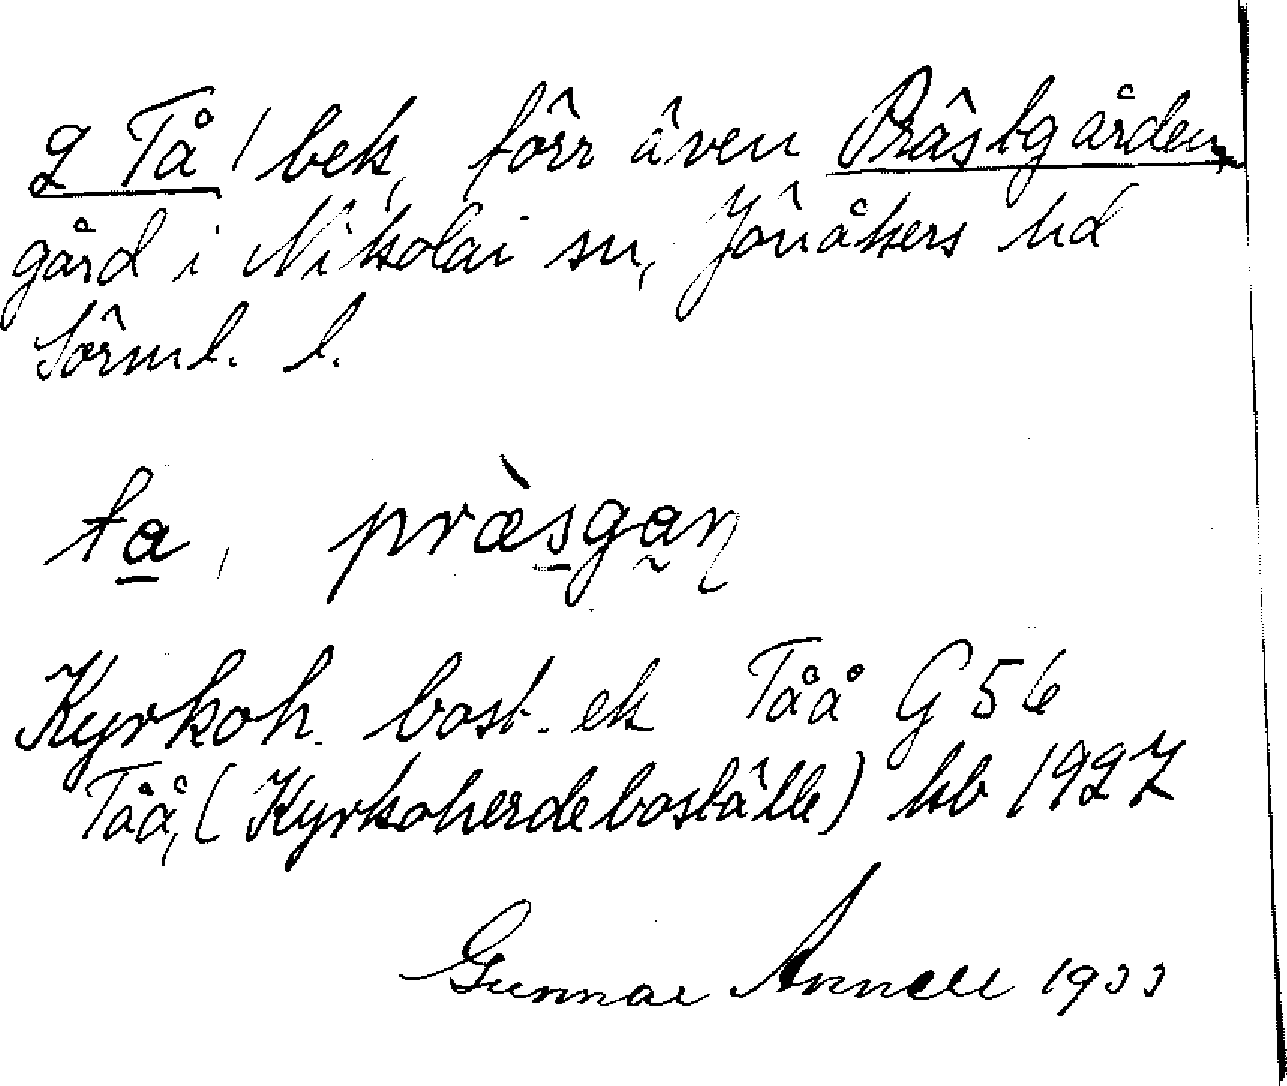 2 Tå, bek, förr även Prästgården,
gård i Nikolai sn, Jönåkers hd
Sörml. l.
ta, præ̀sgaɳ
Kyrkoh. bost. ek Tåå G 56
Tåå, (Kyrkoherdeboställe) hb 1927
Gunnar Annell 1933